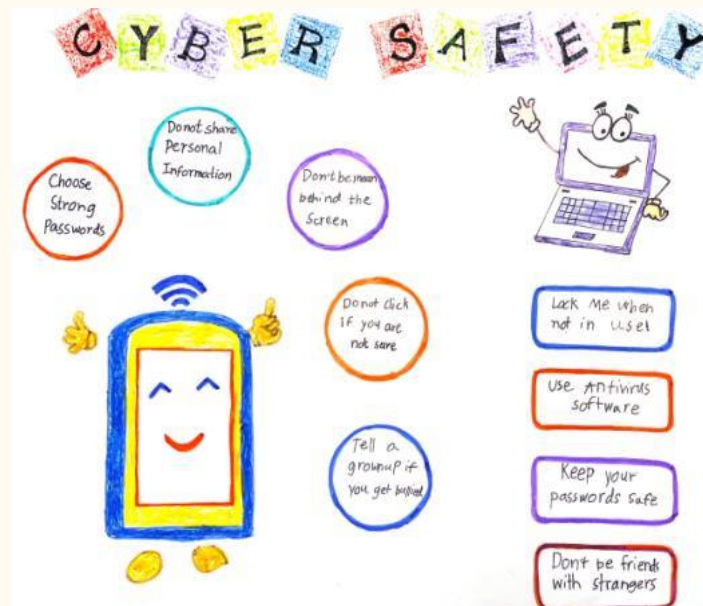 CYBER SAFETY
Do not share
Personal
Information
Choose
Strong
Passwords
Don't be mean
behind the
Screen
Do not click
if you are
not sure
Tell a
grownup if
you get bullied
Lock Me when
not in use!
Use Antivirus
software
Keep your
passwords safe
Dont be friends
with strangers